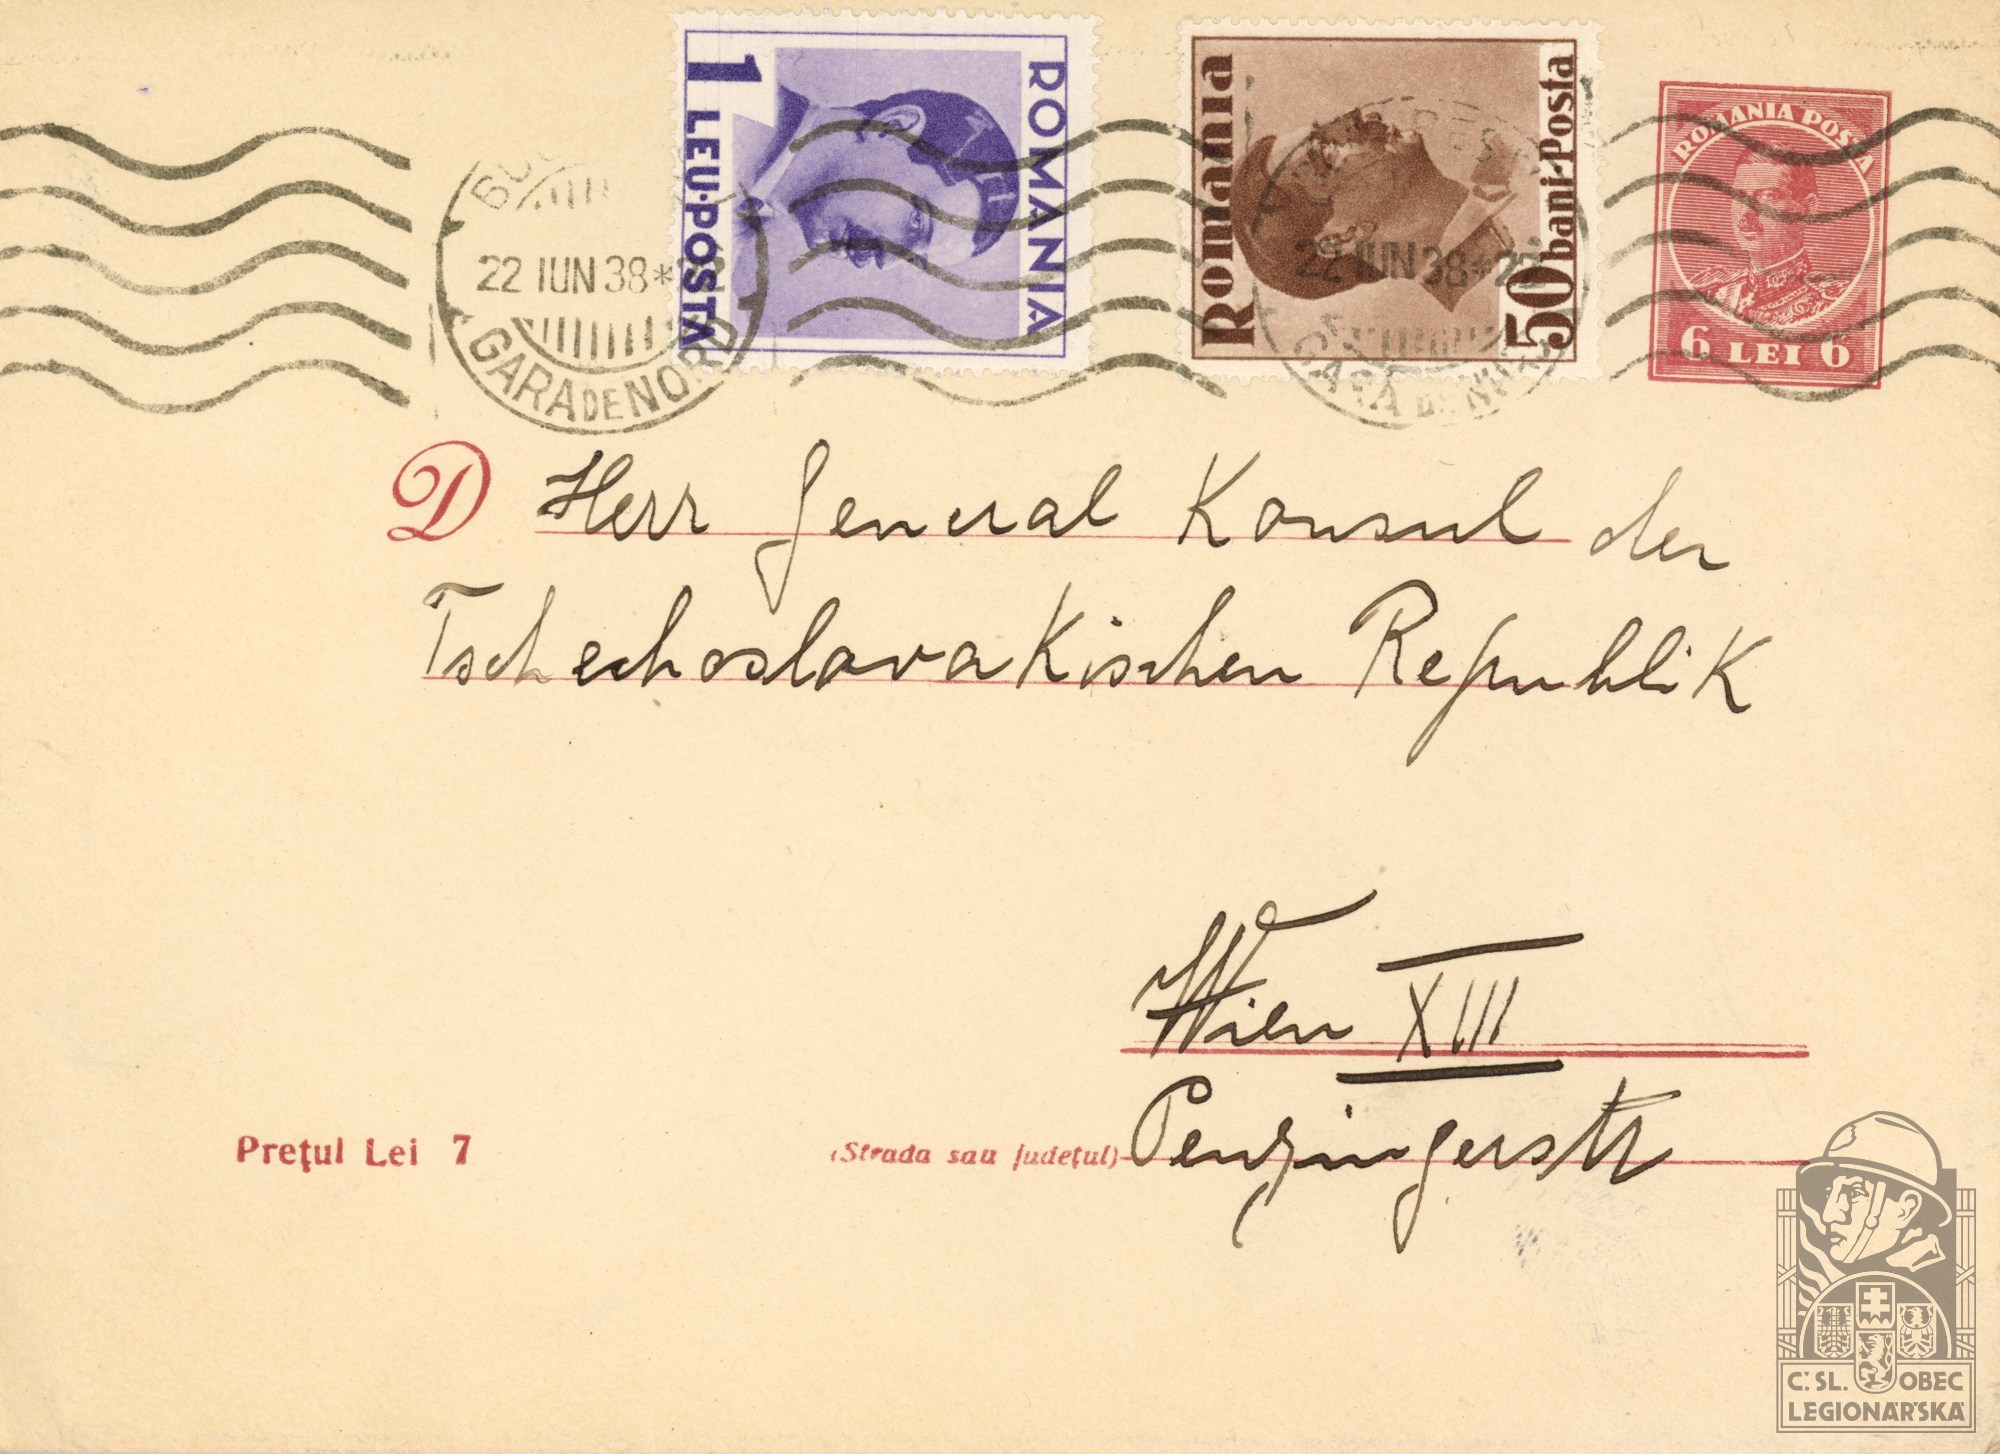 ROMANIA
1 LEU·POSTA
Romania
50 bani·Posta
ROMANIA POSTA
6 LEI 6
22 IUN 38*22
GARA DE NORD
22 IUN 38*22
GARA DE NORD
D Herr General Konsul der
Tschechoslovakischen Republik
Wien XIII
Prețul Lei 7
(Strada sau județul) Penzingerstr
Č. SL. OBEC
LEGIONÁŘSKÁ